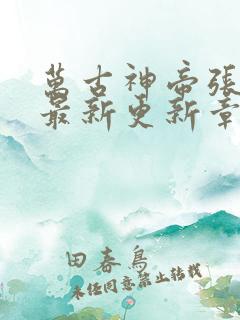 萬古神帝張
最新更新章
田春鳥
未經同意禁止轉載